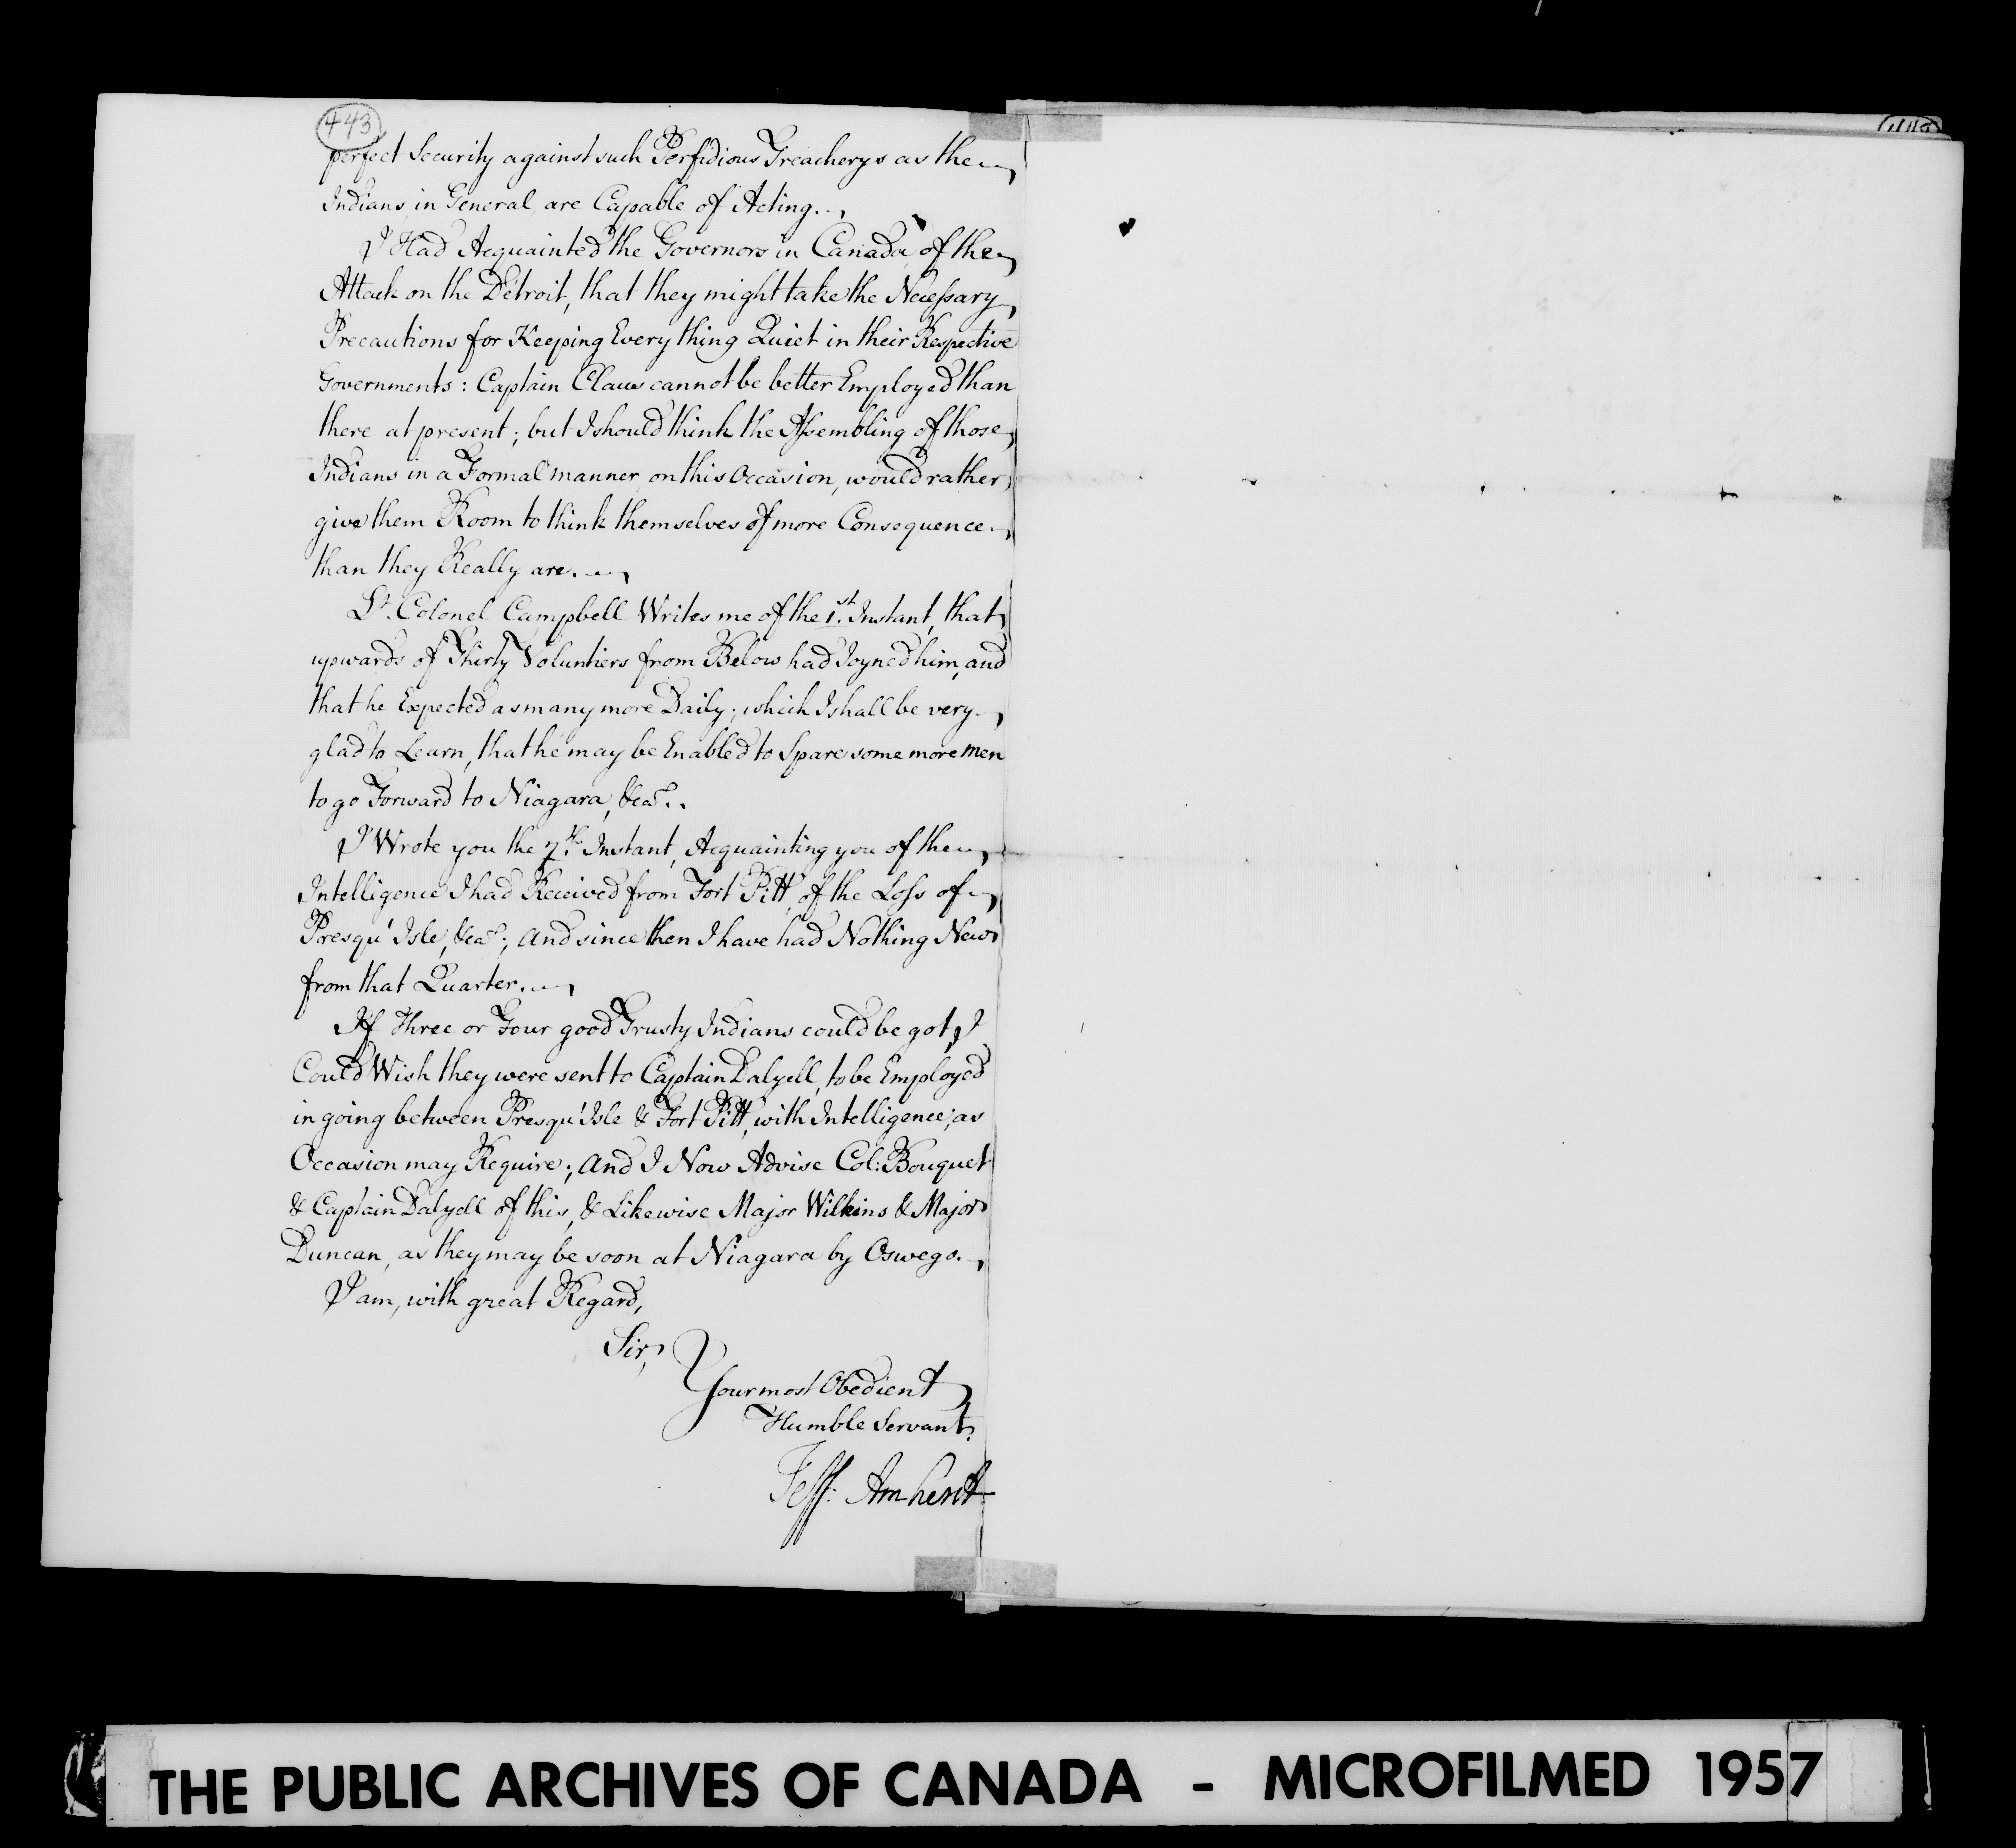 443
perfect Security against such Perfidious Treacherys as the
Indians, in General, are Capable of Acting.
I Had Acquainted the Governors in Canada, of the
Attack on the Détroit, that they might take the Necessary
Precautions for Keeping Every thing Quiet in their Respective
Governments: Captain Claus cannot be better Employed than
there at present; but I should think the Assembling of those
Indians in a Formal manner, on this Occasion, would rather
give them Room to think themselves of more Consequence
than they Really are.
Lt. Colonel Campbell Writes me of the 1st. Instant, that
upwards of Thirty Voluntiers from Below had Joyned him, and
that he Expected as many more Daily; which I shall be very
glad to Learn, that he may be Enabled to Spare some more Men
to go Forward to Niagara, &ca..
I Wrote you the 7th. Instant, Acquainting you of the
Intelligence I had Received from Fort Pitt, of the Loss of
Presqu' Isle, &ca.; and since then I have had Nothing New
from that Quarter.
If Three or Four good Trusty Indians could be got, I
Could Wish they were sent to Captain Dalyell, to be Employed
in going between Presqu' Isle & Fort Pitt, with Intelligence, as
Occasion may Require; and I Now Advise Col: Bouquet
& Captain Dalyell of this, & Likewise Major Wilkins & Major
Duncan, as they may be soon at Niagara by Oswego.
I am, with great Regard,
Sir,
Your most Obedient
Humble Servant,
Jeff: Amherst
THE PUBLIC ARCHIVES OF CANADA - MICROFILMED 1957